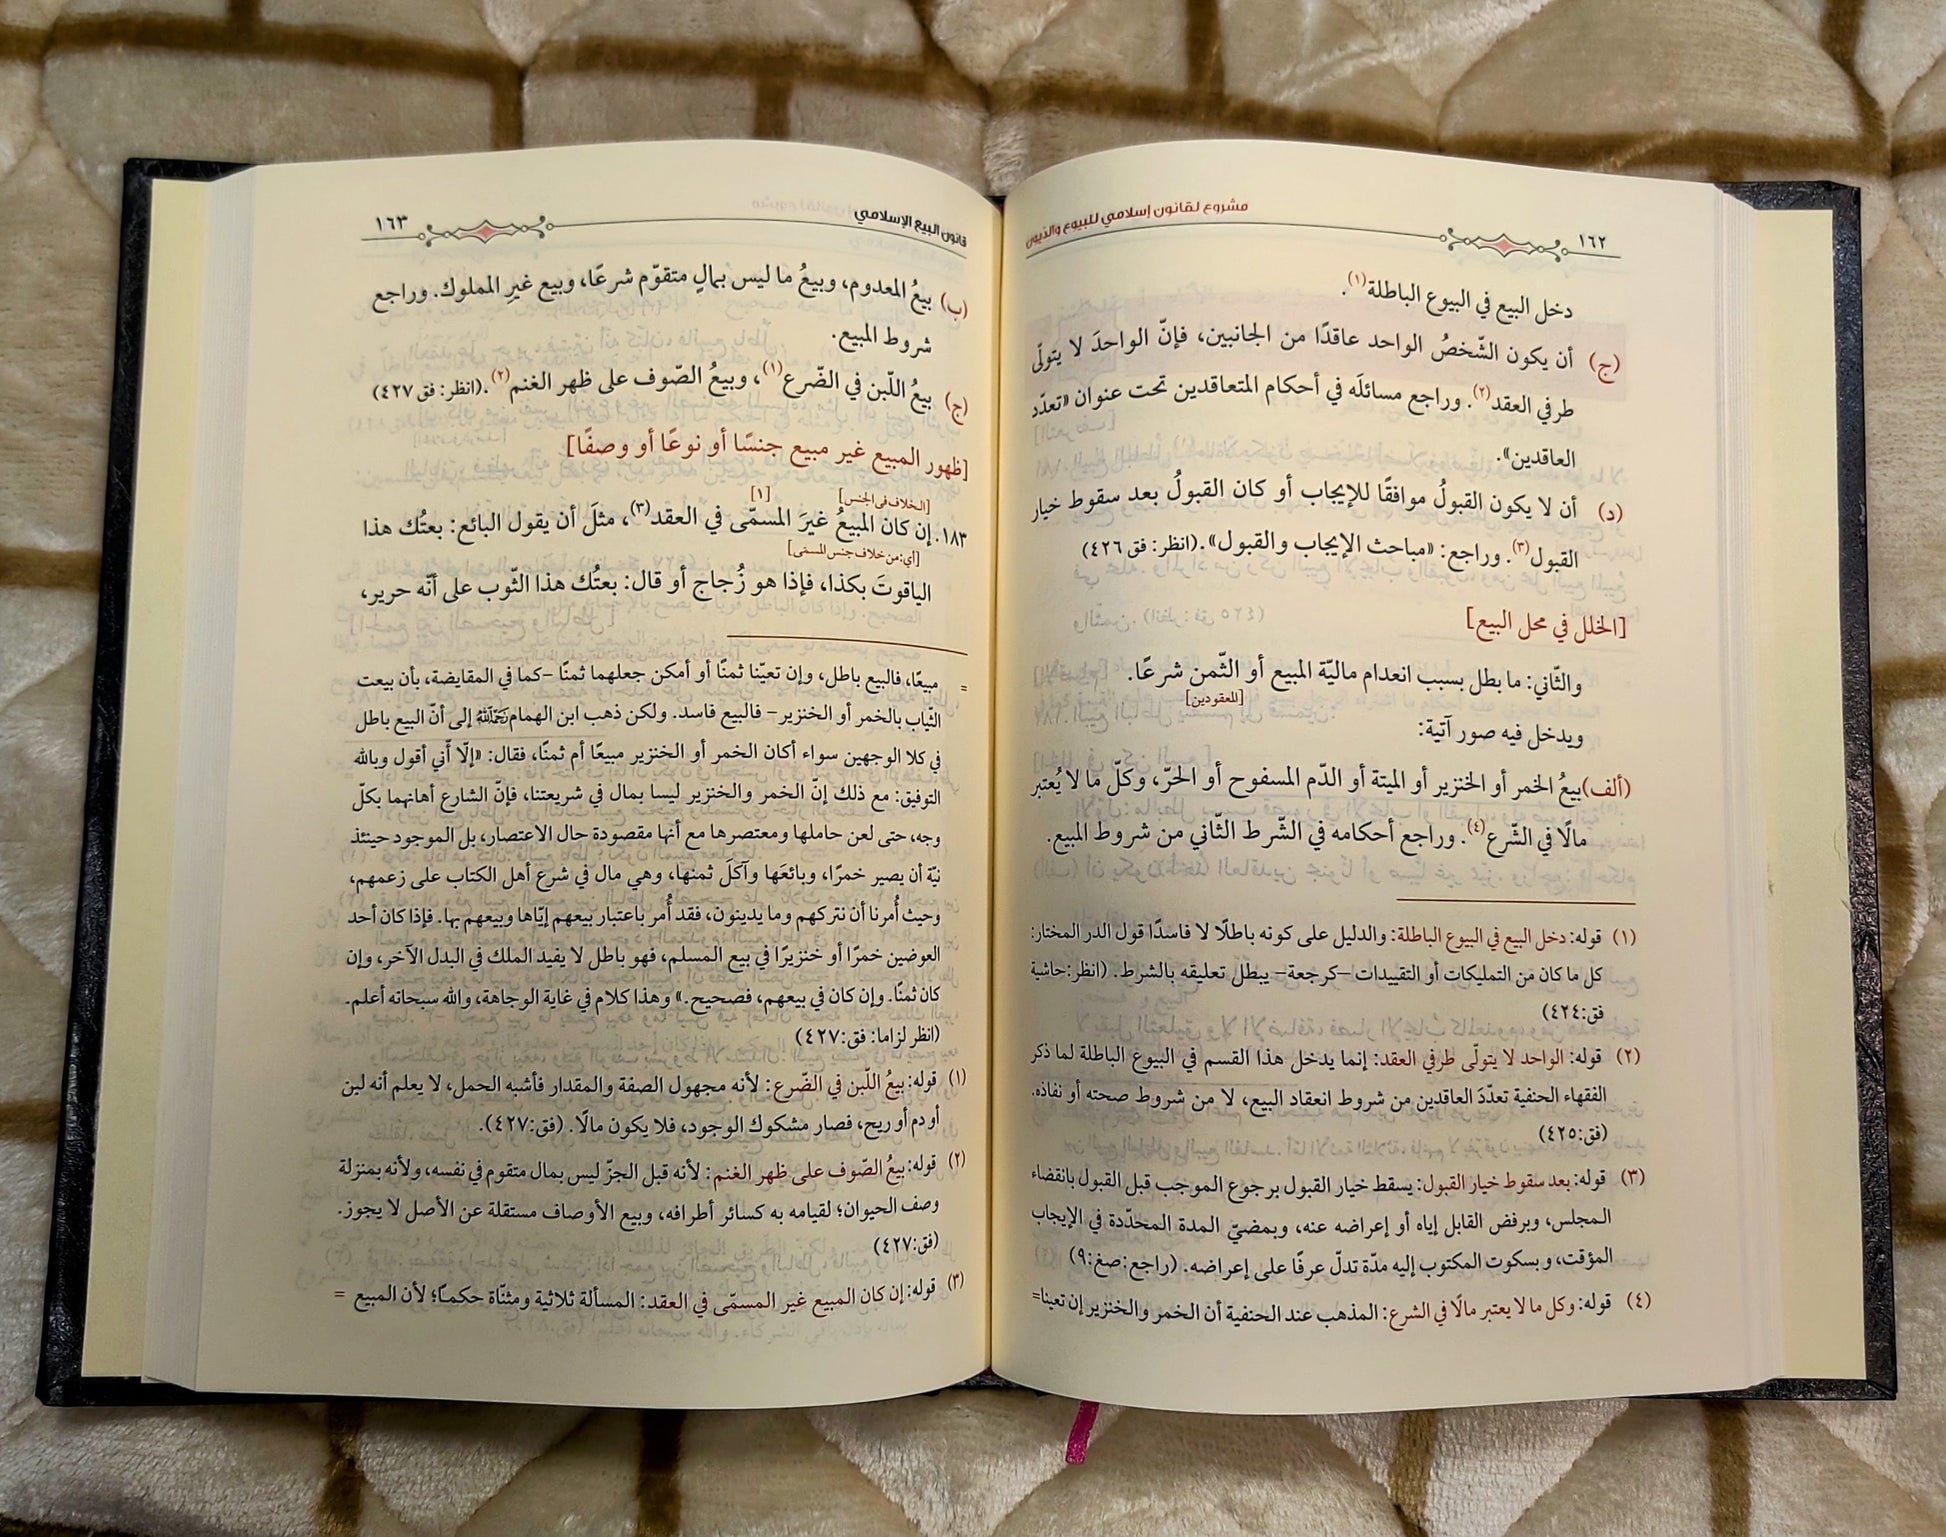 مشروع لقانون إسلامي للبيوع والديون
١٦٢
دخل البيع في البيوع الباطلة(١).
(ج) أن يكون الشّخصُ الواحد عاقدًا من الجانبين، فإنّ الواحدَ لا يتولّى
طرفي العقد(٢). وراجع مسائلَه في أحكام المتعاقدين تحت عنوان «تعدّد
العاقدين».
(د) أن لا يكون القبولُ موافقًا للإيجاب أو كان القبولُ بعد سقوط خيار
القبول(٣). وراجع: «مباحث الإيجاب والقبول».(انظر: فق ٤٢٦)
[الخلل في محل البيع]
والثّاني: ما بطل بسبب انعدام ماليّة المبيع أو الثّمن شرعًا.
[للعقودين]
ويدخل فيه صور آتية:
(ألف)بيعُ الخمر أو الخنزير أو الميتة أو الدّم المسفوح أو الحرّ، وكلّ ما لا يُعتبر
مالًا في الشّرع(٤). وراجع أحكامه في الشّرط الثّاني من شروط المبيع.
(١) قوله: دخل البيع في البيوع الباطلة: والدليل على كونه باطلًا لا فاسدًا قول الدر المختار:
كل ما كان من التمليكات أو التقييدات –كرجعة– يبطل تعليقه بالشرط. (انظر:حاشية
فق:٤٢٤)
(٢) قوله: الواحد لا يتولّى طرفي العقد: إنما يدخل هذا القسم في البيوع الباطلة لما ذكر
الفقهاء الحنفية تعدّدَ العاقدين من شروط انعقاد البيع، لا من شروط صحته أو نفاذه.
(فق:٤٢٥)
(٣) قوله: بعد سقوط خيار القبول: يسقط خيار القبول برجوع الموجب قبل القبول بانقضاء
المجلس، وبرفض القابل إياه أو إعراضه عنه، وبمضيّ المدة المحدّدة في الإيجاب
المؤقت، وبسكوت المكتوب إليه مدّة تدلّ عرفًا على إعراضه. (راجع:صغ:٩)
(٤) قوله: وكل ما لا يعتبر مالًا في الشرع: المذهب عند الحنفية أن الخمر والخنزير إن تعينا=
قانون البيع الإسلامي
١٦٣
(ب) بيعُ المعدوم، وبيعُ ما ليس بمالٍ متقوّم شرعًا، وبيع غيرِ المملوك. وراجع
شروط المبيع.
(ج) بيعُ اللّبن في الضّرع(١)، وبيعُ الصّوف على ظهر الغنم(٢).(انظر: فق ٤٢٧)
[ظهور المبيع غير مبيع جنسًا أو نوعًا أو وصفًا]
[الخلاف في الجنس] [١]
١٨٣. إن كان المبيعُ غيرَ المسمّى في العقد(٣)، مثلَ أن يقول البائع: بعتُك هذا
[أي: من خلاف جنس المسمّى]
الياقوتَ بكذا، فإذا هو زُجاج أو قال: بعتُك هذا الثّوب على أنّه حرير،
= مبيعًا، فالبيع باطل، وإن تعيّنا ثمنًا أو أمكن جعلهما ثمنًا –كما في المقايضة، بأن بيعت
الثّياب بالخمر أو الخنزير– فالبيع فاسد. ولكن ذهب ابن الهمام رحمه الله إلى أنّ البيع باطل
في كلا الوجهين سواء أكان الخمر أو الخنزير مبيعًا أم ثمنًا، فقال: «إلّا أني أقول وبالله
التوفيق: مع ذلك إنّ الخمر والخنزير ليسا بمال في شريعتنا، فإنّ الشارع أهانهما بكلّ
وجه، حتى لعن حاملها ومعتصرها مع أنها مقصودة حال الاعتصار، بل الموجود حينئذ
نيّة أن يصير خمرًا، وبائعَها وآكلَ ثمنها، وهي مال في شرع أهل الكتاب على زعمهم،
وحيث أُمرنا أن نتركهم وما يدينون، فقد أُمر باعتبار بيعهم إيّاها وبيعهم بها. فإذا كان أحد
العوضين خمرًا أو خنزيرًا في بيع المسلم، فهو باطل لا يفيد الملك في البدل الآخر، وإن
كان ثمنًا. وإن كان في بيعهم، فصحيح.» وهذا كلام في غاية الوجاهة، والله سبحانه أعلم.
(انظر لزاما: فق:٤٢٧)
(١) قوله: بيعُ اللّبن في الضّرع: لأنه مجهول الصفة والمقدار فأشبه الحمل، لا يعلم أنه لبن
أو دم أو ريح، فصار مشكوك الوجود، فلا يكون مالًا. (فق:٤٢٧).
(٢) قوله: بيعُ الصّوف على ظهر الغنم: لأنه قبل الجزّ ليس بمال متقوم في نفسه، ولأنه بمنزلة
وصف الحيوان؛ لقيامه به كسائر أطرافه، وبيع الأوصاف مستقلة عن الأصل لا يجوز.
(فق:٤٢٧)
(٣) قوله: إن كان المبيع غير المسمّى في العقد: المسألة ثلاثية ومثنّاة حكمًا؛ لأن المبيع =